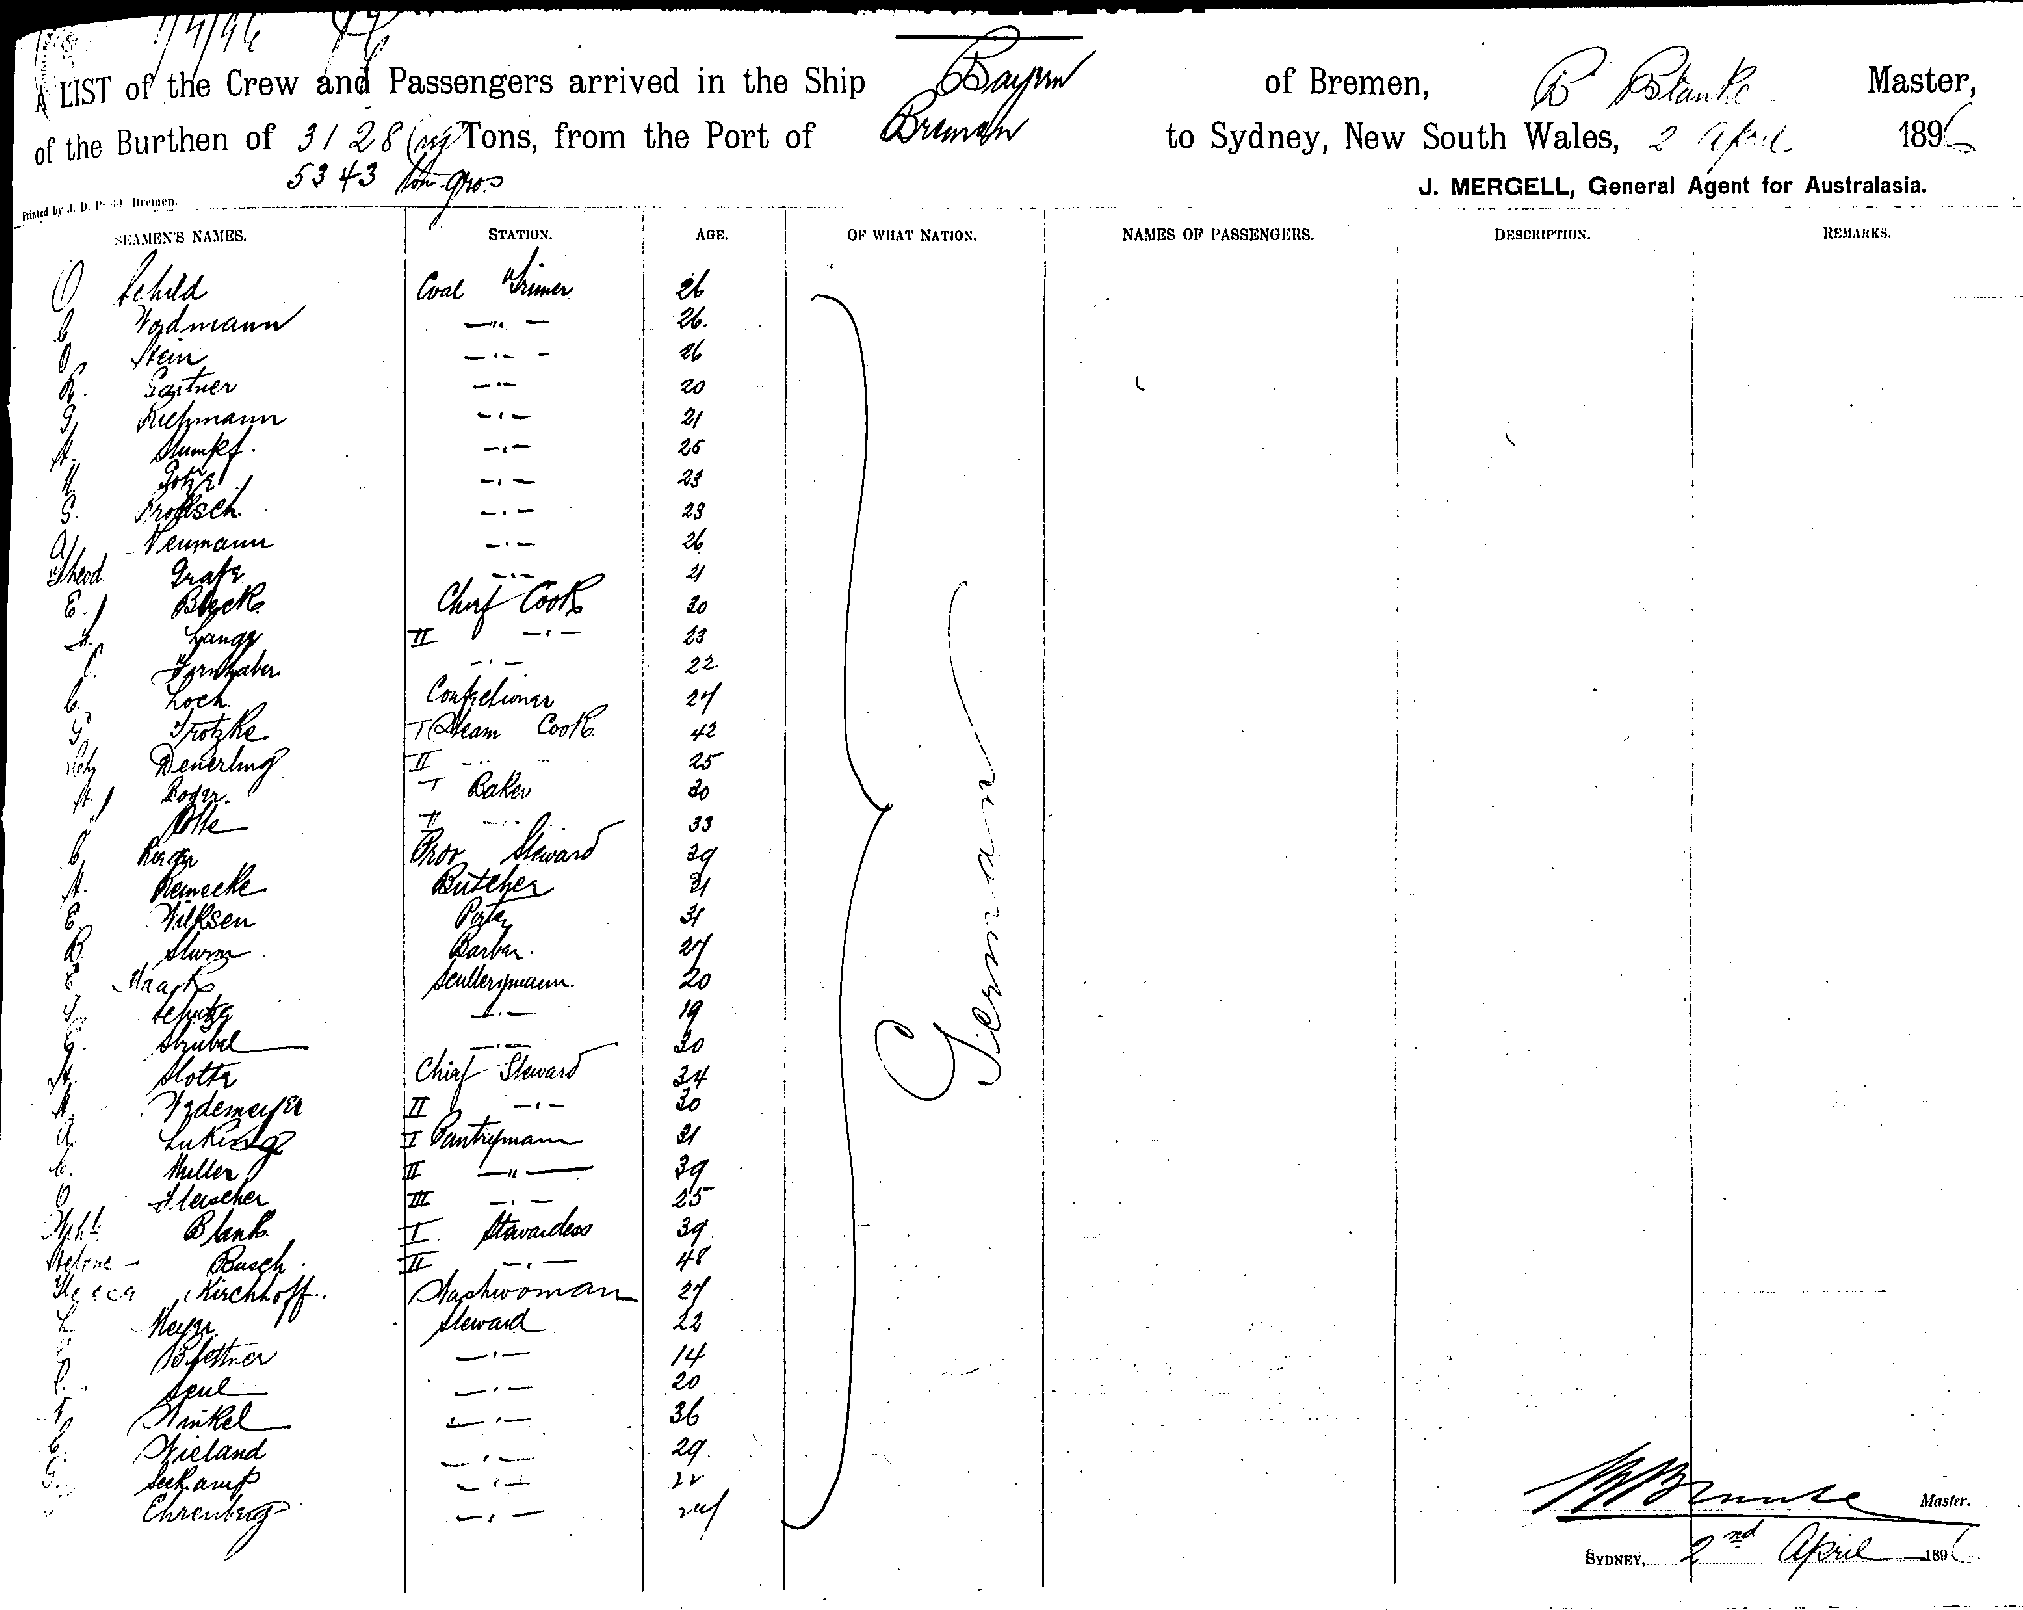 A LIST of the Crew and Passengers arrived in the Ship Bayern of Bremen, B Blanke Master,
of the Burthen of 3128 Tons, from the Port of Bremen to Sydney, New South Wales, 2 April 1896
5343 ton gros
J. MERGELL, General Agent for Australasia.
Printed by J. D. Bremen.
SEAMEN'S NAMES. STATION. AGE. OF WHAT NATION. NAMES OF PASSENGERS. DESCRIPTION. REMARKS.
O Schild Coal Trimer 26
C Wedmann —"— 26.
O. Stein —"— 26
R. Gartner —"— 20
G —"— 21
A. Stumpf. —"— 25
—"— 23
G. —"— 23
A Neumann —"— 26
Theod Grafe —"— 21
E. Chief Cook 20
Lange II —"— 23
—"— 22
C. Loch. Confectioner 27
G Trotzke I Steam Cook 42
Deuerling II 25
A. I Baker 30
II 33
C. Prov Steward 39
A. Reinecke Butcher 21
E. Wilksen 31
B. Sturm Barber. 27
E Scullerymann 20
Schutze —"— 19
G. Strubel —"— 20
A. Stotte Chief Steward 34
A. Wedemeyer II —"— 30
A. Luking I Pantrymann 21
C. Muller II —"— 39
O Fleischer III —"— 25
Blank I. Stewardess 39
Helene Busch. II —"— 48
Kirchhoff. Washwoman 27
L Meyer Steward 22
Blettner —"— 14
—"— 20
Winkel —"— 36
C. Wieland —"— 29
G. Seekamp —"— 22
Ehrenberg —"— 24
German
B Blanke Master.
SYDNEY, 2nd April 1896